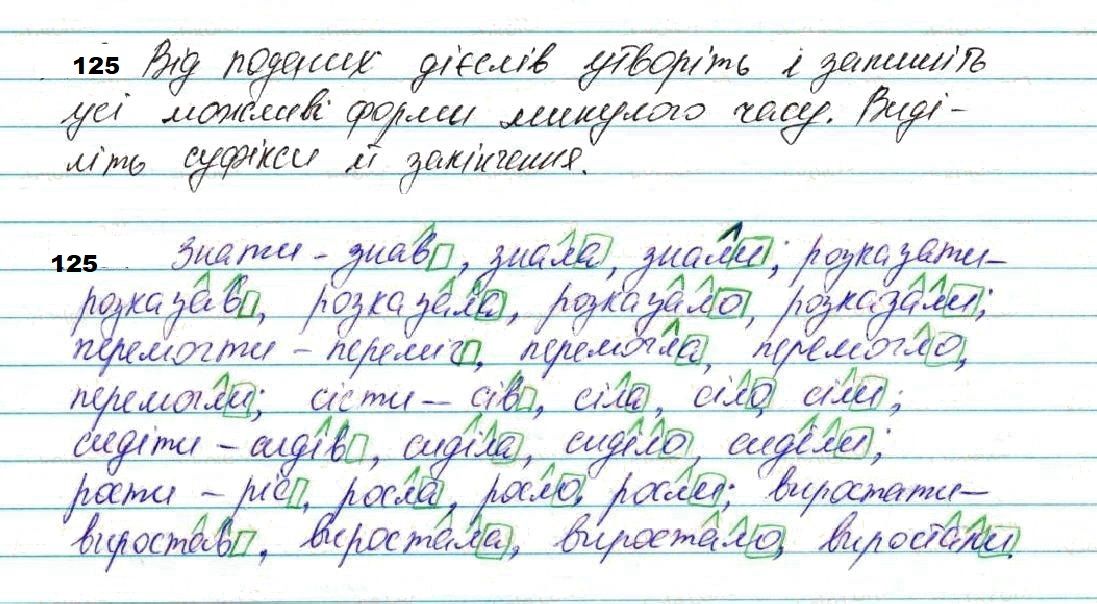 125 Від поданих дієслів утворіть і запишіть
усі можливі форми минулого часу. Виді-
літь суфікси й закінчення.
125 Знати – знав, знала, знали; розказати –
розказав, розказала, розказало, розказали;
перемогти – переміг, перемогла, перемогло,
перемогли; сісти – сів, сіла, сіло, сіли;
сидіти – сидів, сиділа, сиділо, сиділи;
рости – ріс, росла, росло, росли; виростати –
виростав, виростала, виростало, виростали.